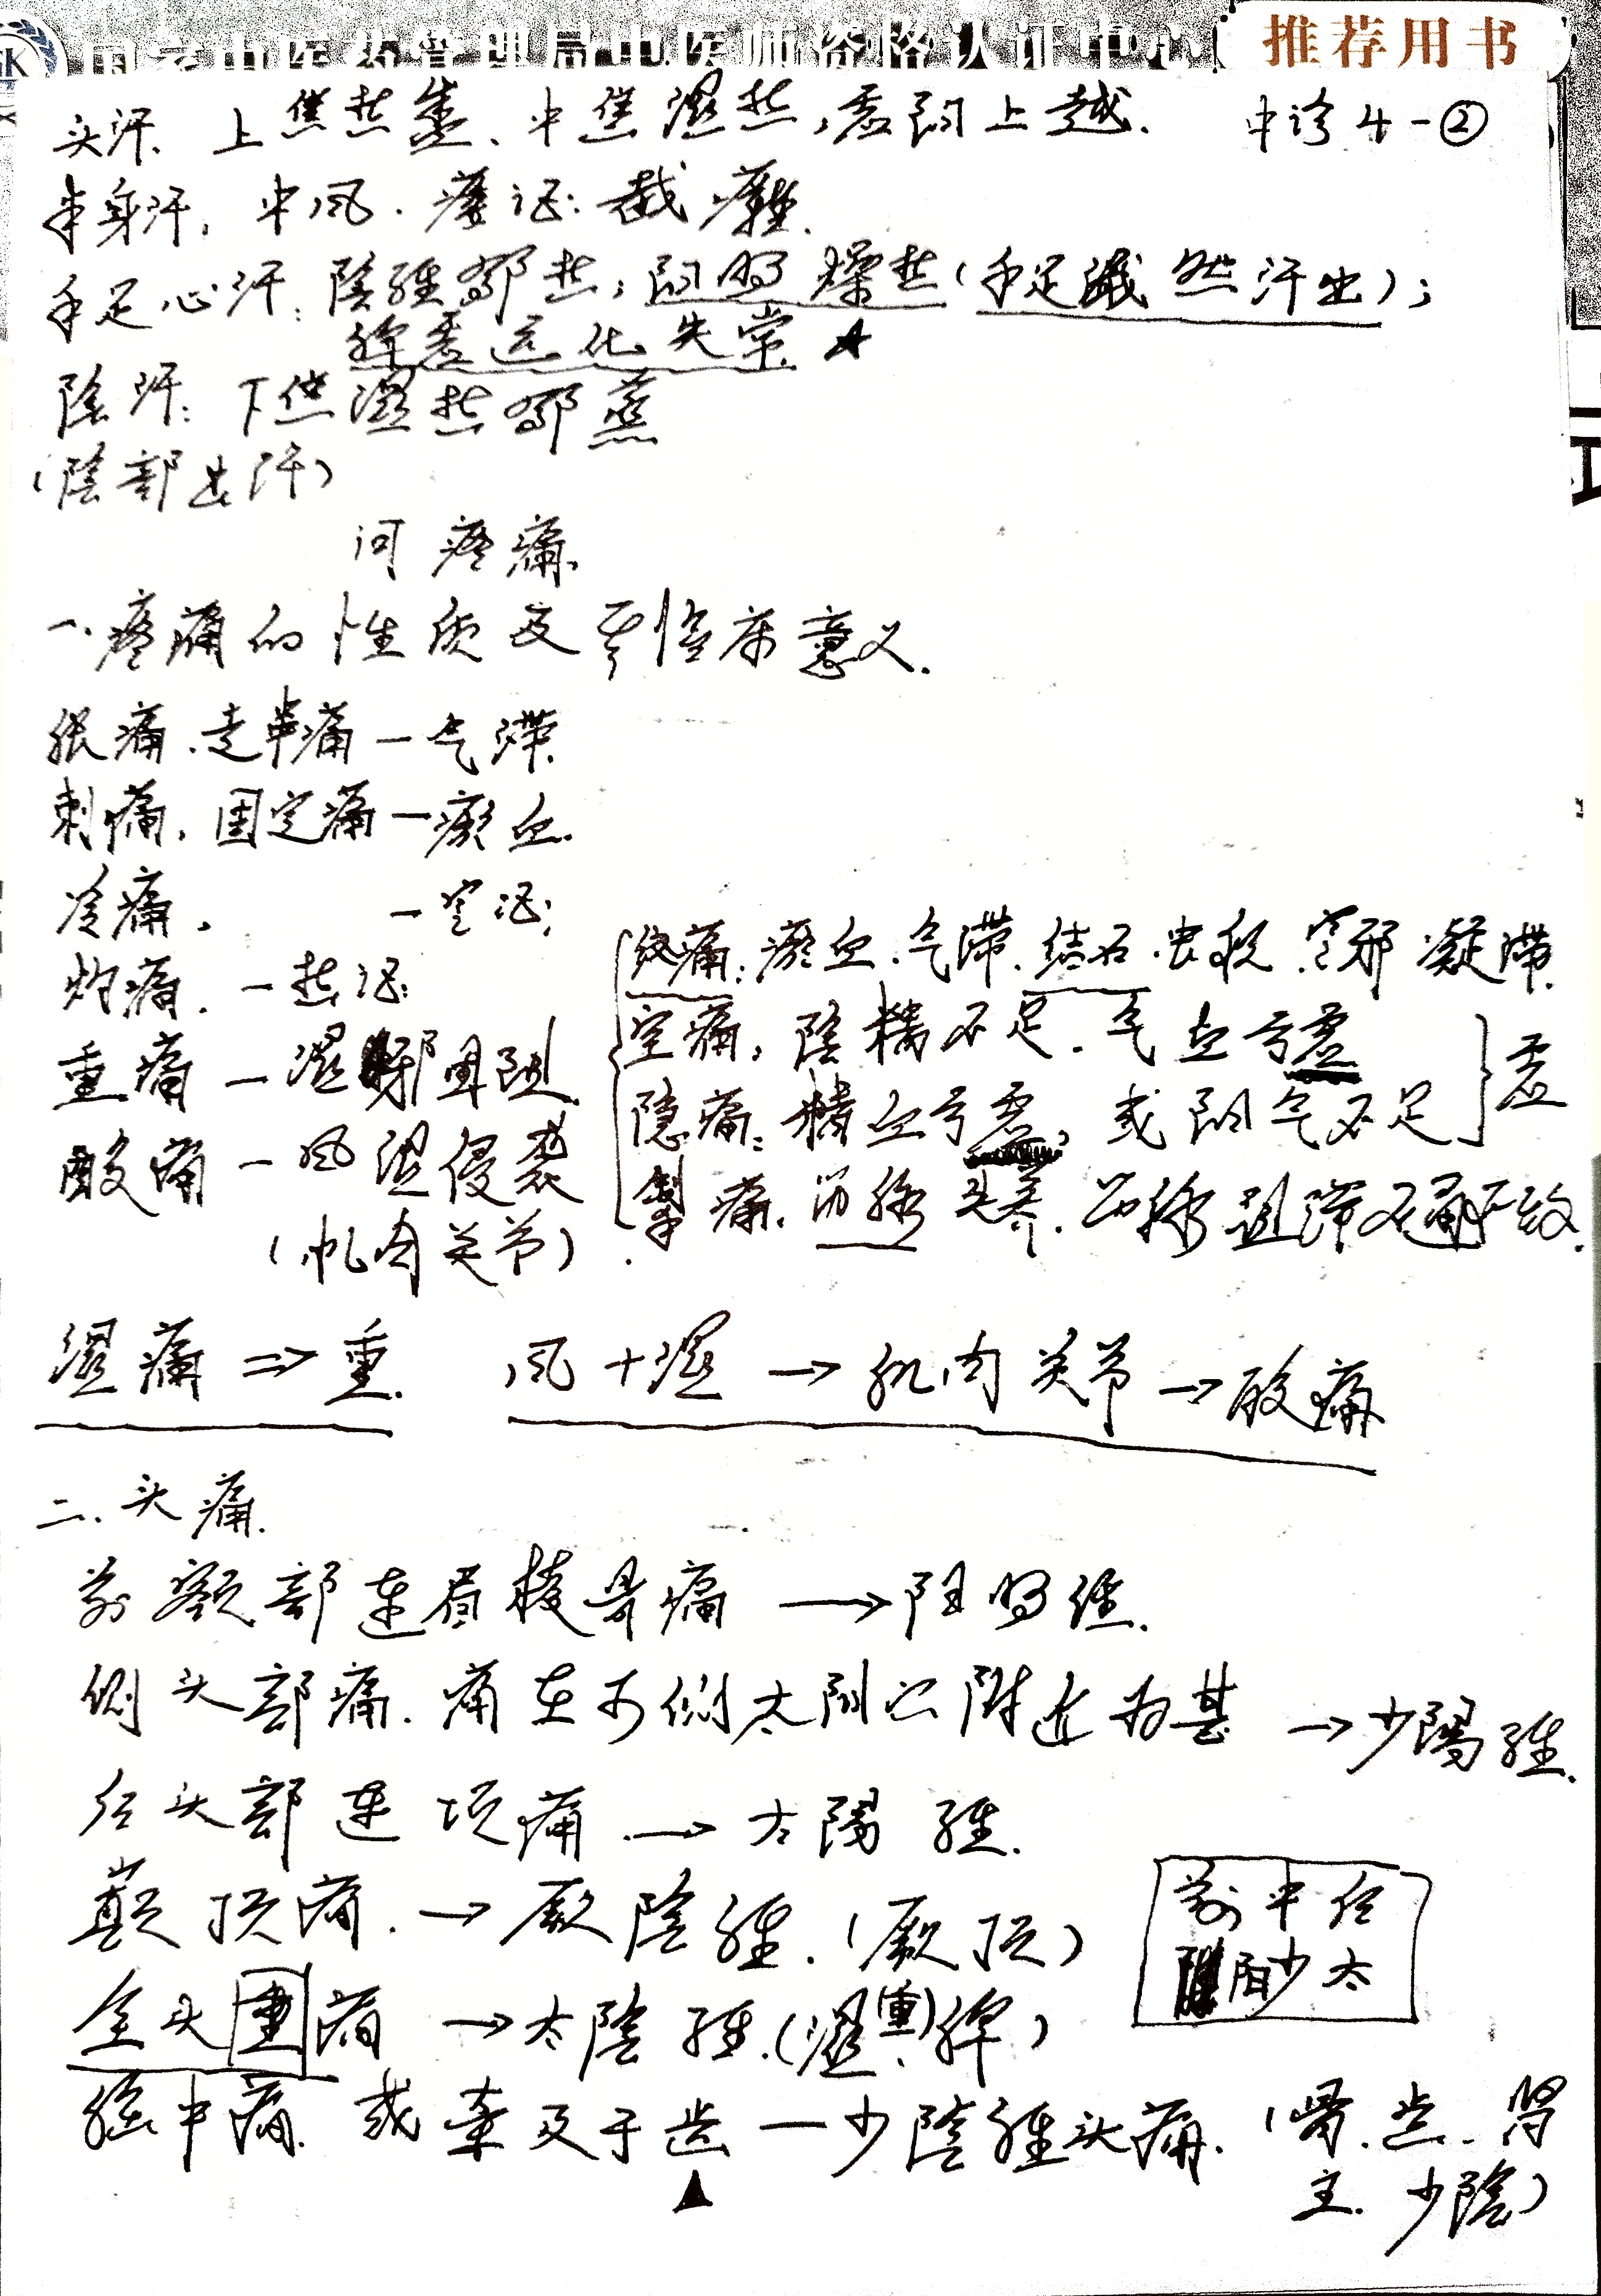 国家中医药管理局中医师资格认证中心 推荐用书
中诊4-②
头汗、上焦热盛、中焦湿热,虚阳上越.
半身汗,中风.痿证:截瘫.
手足心汗:陰經郁热;阳明燥热(手足濈然汗出);
脾虚运化失常.★
陰汗:下焦湿热郁蒸
(陰部出汗)
问疼痛.
一.疼痛的性质及其临床意义.
胀痛.走串痛—气滞.
刺痛,固定痛—瘀血.
冷痛, —寒证;
灼痛.—热证;
重痛—湿邪困阻.
酸痛—风湿侵袭
(肌肉关节).
绞痛:瘀血.气滞.结石.虫积.寒邪凝滞.
空痛:陰精不足.气血亏虚
隐痛:精血亏虚,或阳气不足
虚
掣痛.筋脉失养.筋脉阻滞不通所致.
湿痛⇒重. 风+湿→肌肉关节→酸痛
二.头痛.
前额部连眉棱骨痛→阳明经.
侧头部痛.痛在两侧太阳穴附近为甚→少陽經.
后头部连项痛→太陽經.
巅顶痛.→厥陰經.(厥顶)
全头重痛→太陰經.(湿(重)、脾)
前中后
阳少太
脑中痛.或牵及于齿—少陰經头痛.(骨.齿.肾
主.少陰)